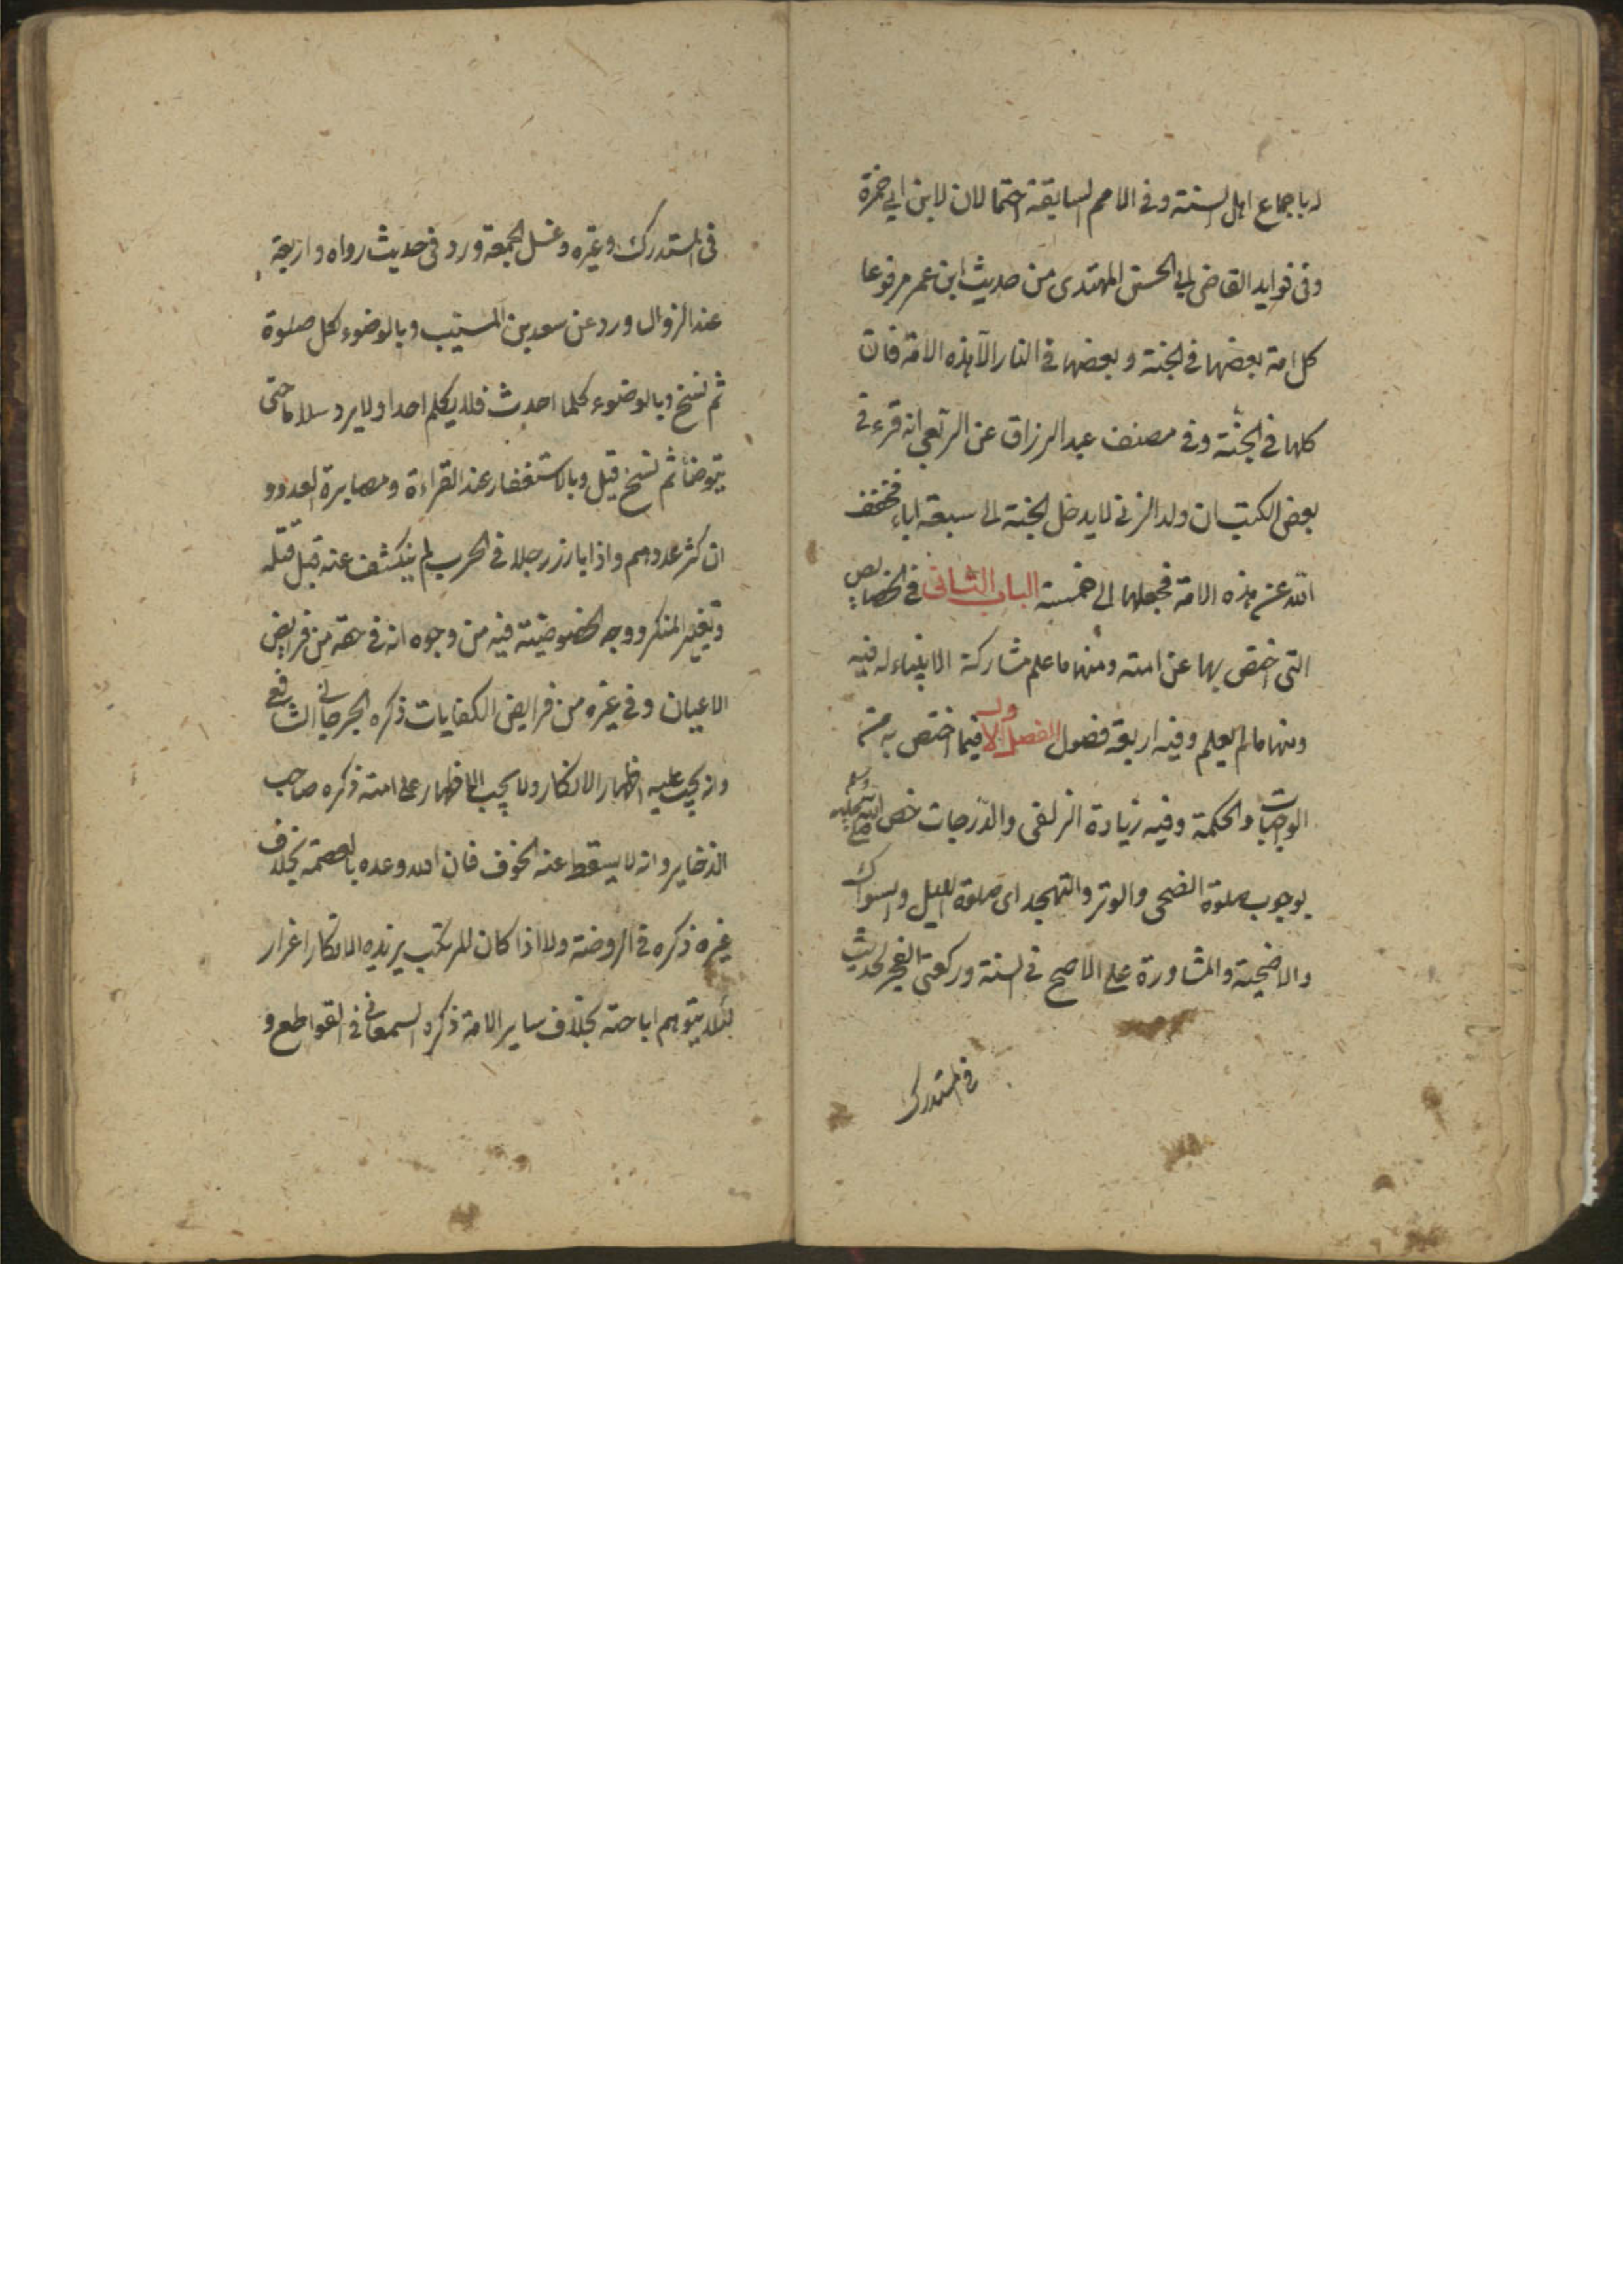 له باجماع اهل السنة وفى الامم السابقة احتمالان لابن ابي حمزة
وفى فوايد القاضى ابي الحسن المهتدى من حديث ابن عمر مرفوعا
كل امة بعضها فى الجنة وبعضها فى النار الا هذه الامة فان
كلها فى الجنة وفى مصنف عبد الرزاق عن الربعي انه قرء في
بعض الكتب ان ولد الزنى لا يدخل الجنة الى سبعة اباء فخفف
الله عن هذه الامة فجعلها الى خمسة الباب الثانى في الخصايص
التى اختص بها عن امته ومنها ما علم مشاركة الانبياء له فيه
ومنها ما لم يعلم وفيه اربعة فصول الفصل الاول فيما اختص به من
الواجبات والحكمة وفيه زيادة الزلفى والدرجات خص صلى الله عليه وسلم
بوجوب صلوة الضحى والوتر والتهجد اى صلوة الليل والسواك
والاضحية والمشاورة على الاصح فى السنة وركعتى الفجر لحديث
فى المستدرك
فى المستدرك وغيره وغسل الجمعة ورد فى حديث رواه واربعة
عند الزوال ورد عن سعد بن المسيب وبالوضوء لكل صلوة
ثم نسخ وبالوضوء كلما احدث فلا يكلم احدا ولا يرد سلاما حتى
يتوضأ ثم نسخ قيل وبالاستغفار عند القراءة ومصابرة العدو و
ان كثر عددهم واذا بارز رجلا فى الحرب لم ينكشف عنه قبل قتله
وتغيير المنكر ووجه الخصوصيته فيه من وجوه انه فى حقه من فرايض
الاعيان وفي غيره من فرايض الكفايات ذكره الجرجانى الشافعي
وانه يجب عليه اظهار الانكار ولا يجب الاظهار على امته ذكره صاحب
الذخاير وانه لا يسقط عنه الخوف فان الله وعده بالعصمة بخلاف
غيره ذكره في الروضة ولا اذا كان المرتكب يزيده الانكار اغرار
لئلا يتوهم اباحته بخلاف ساير الامة ذكره السمعانى فى القواطع و